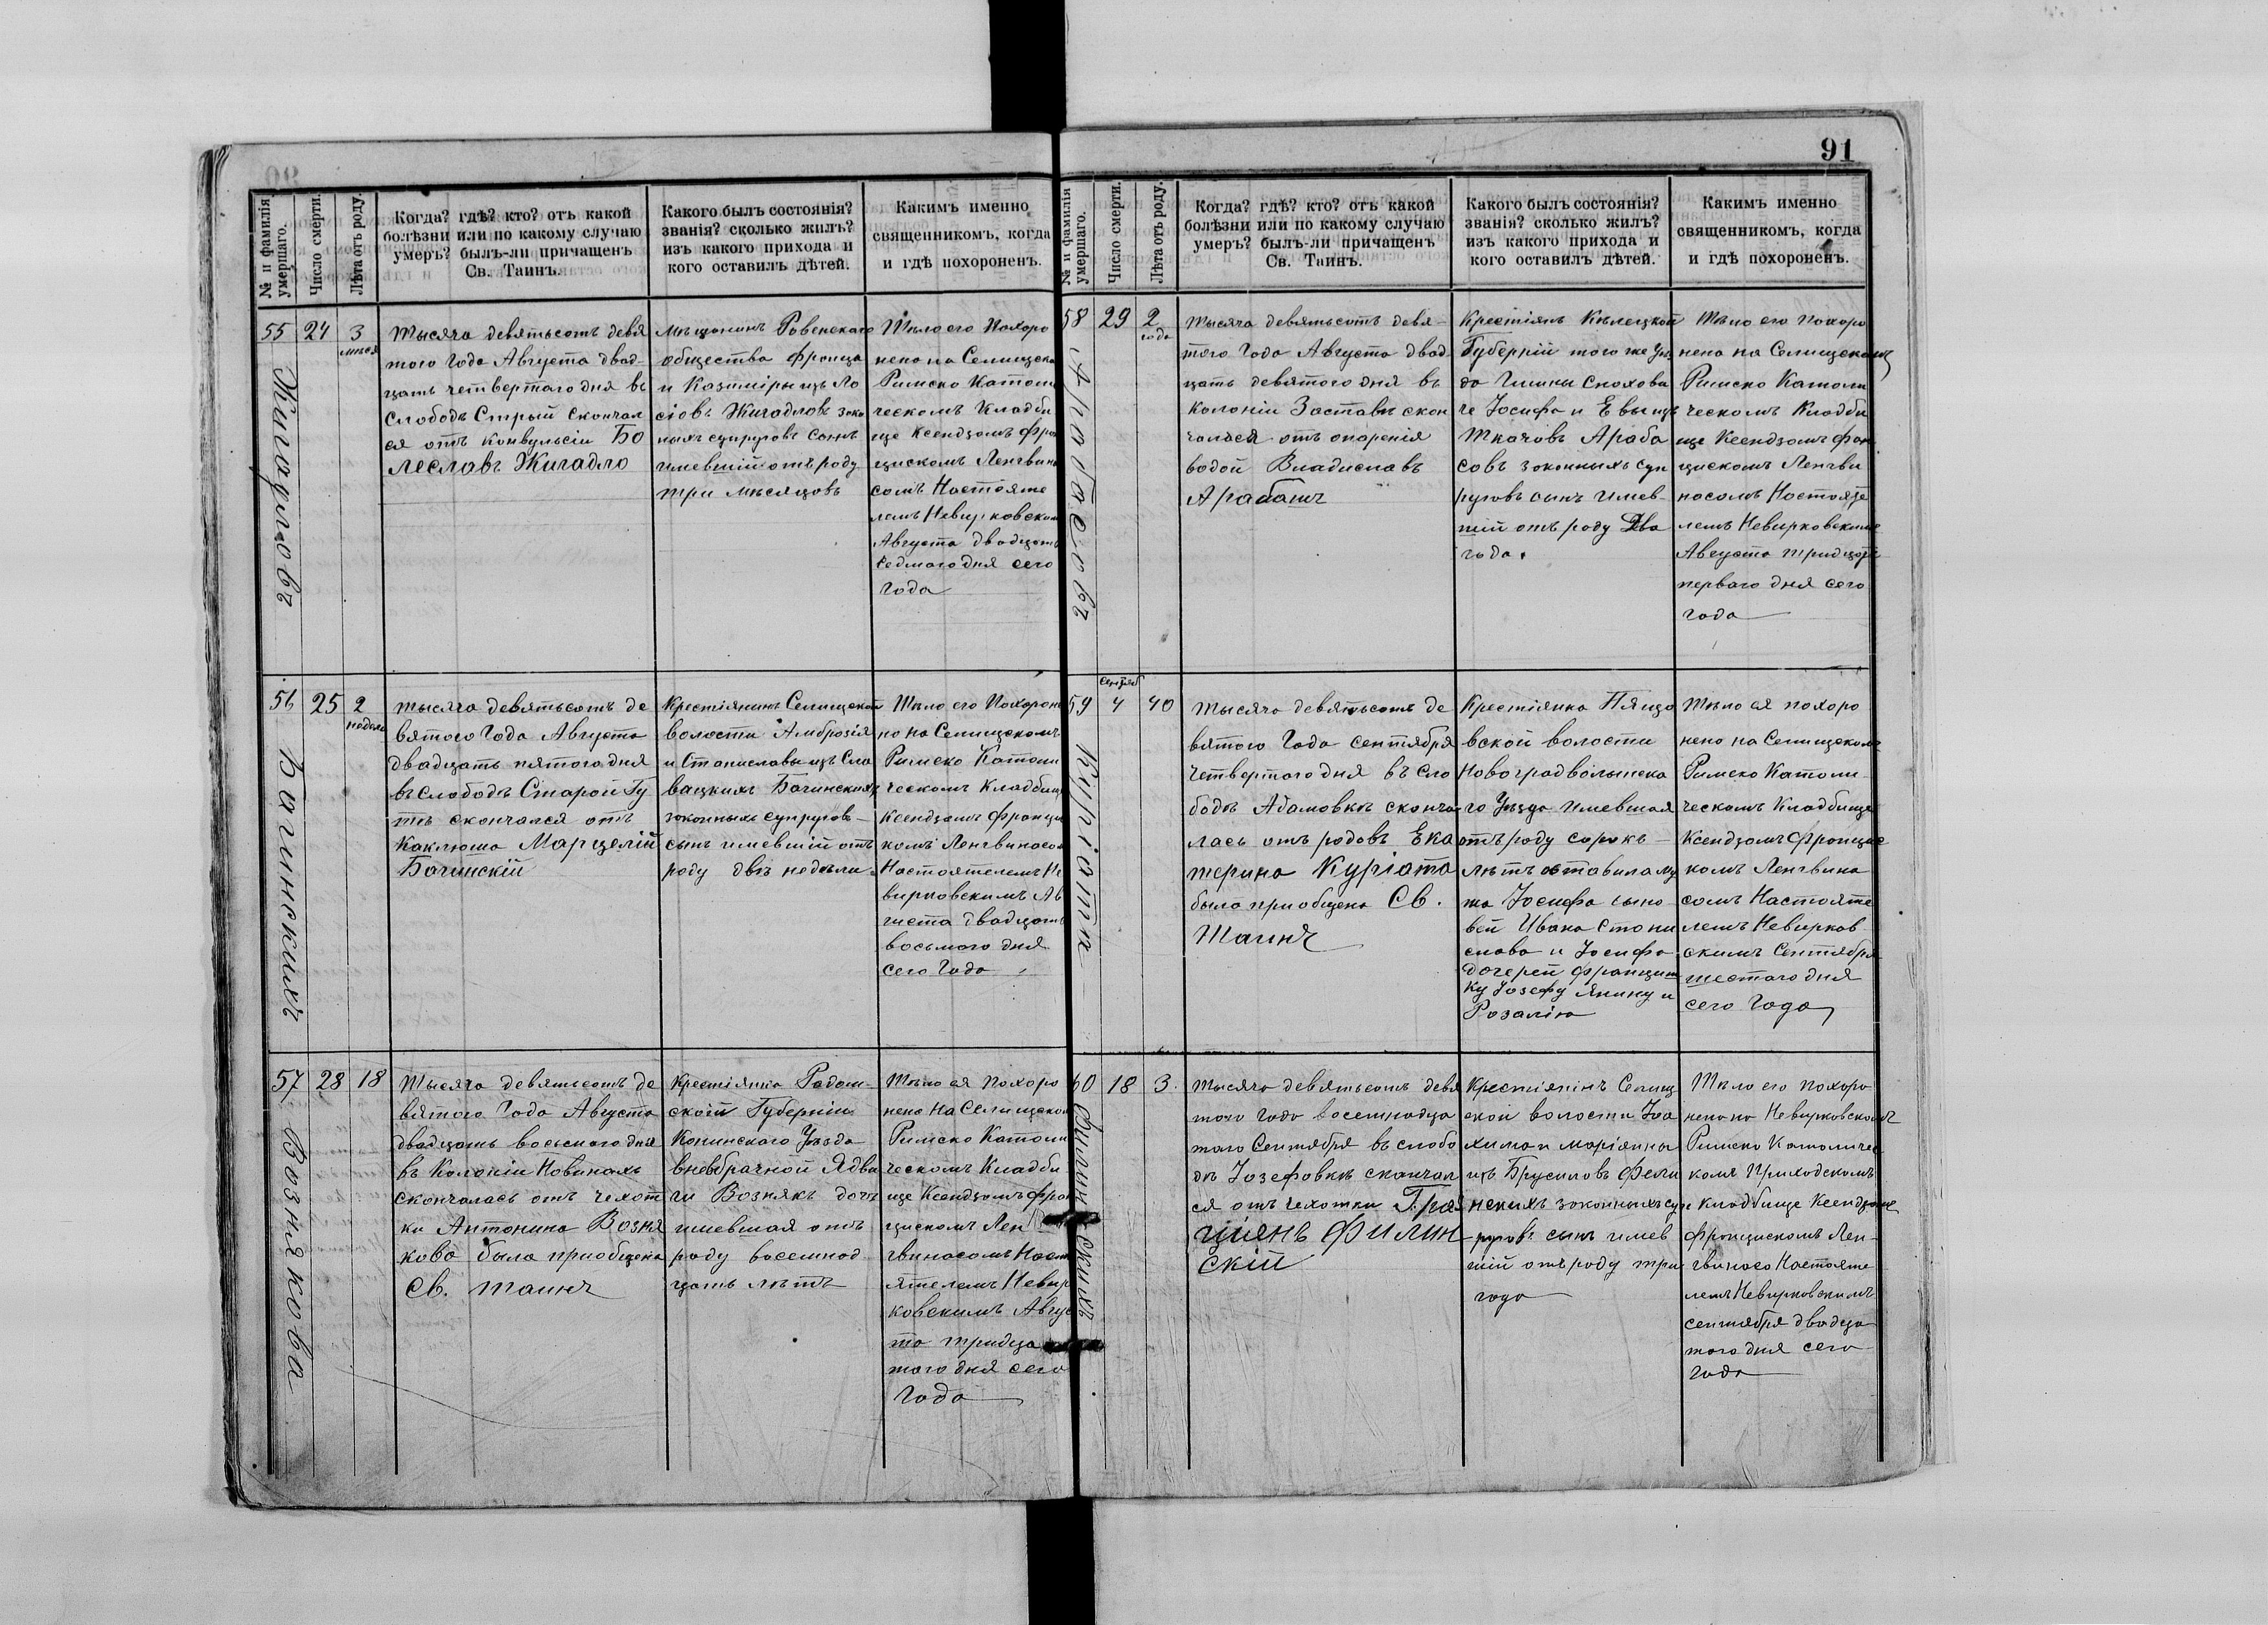 91
№ и фамилія
умершаго.
Число смерти.
Лѣта отъ роду.
Когда? гдѣ? кто? отъ какой
болѣзни или по какому случаю
умеръ? былъ-ли причащенъ
Св. Таинъ.
Какого былъ состоянія?
званія? сколько жилъ?
изъ какого прихода и
кого оставилъ дѣтей.
Какимъ именно
священникомъ, когда
и гдѣ похороненъ.
55
Жигадловъ
24
3
мѣся
Тысяча девятьсотъ девя
таго Года Августа двад-
цать четвертаго дня въ
Слободѣ Стрый скончал
ся отъ Конвульсіи Бо
леславъ Жигадло
Мѣщанинъ Ровенскаго
общества Франца
и Казиміры изъ Ло
сіовъ Жигадловъ зако
ныхъ супруговъ сынъ
имевшій отъ роду
три мѣсяцовъ
Тѣло его Похоро
нено на Селищско
Римско Католи
ческомъ Кладби
ще Ксендзомъ Фран
цискомъ Ленгвин
сомъ Настояте
лемъ Невирковским
Августа двадцать
седмаго дня сего
Года
56
Багинскихъ
25
2
недели
Тысяча девятьсотъ де
вятого Года Августа
двадцать пятого дня
въ Слободѣ Старой Гу
тѣ скончался отъ
Каклюша Марцелій
Багинскій
Крестіянинъ Селищской
волости Амброзія
и Станиславы изъ Сло
вацкихъ Багинскихъ
законныхъ супруговъ
сынъ имевшій отъ
роду двѣ недели.
Тѣло его Похороне
но на Селищскомъ
Римско Католи
ческомъ Кладбищ
Ксендзомъ Францис
комъ Ленгвинасом
Настоятелемъ Не
вирковскимъ Ав
густа двадцать
восьмого дня
сего Года
57
Вознякова
28
18
Тысяча девятьсотъ де
вятого Года Августа
двадцать восьмого дня
въ Колоніи Новинахъ
скончалась отъ чехот
ки Антонина Возня
кова была приобщена
Св. Таинъ
Крестіянка Радом-
ской Губерніи
Конинского Уѣзда
внебрачной Ядви
ги Вознякъ дочь
имевшая отъ
роду восемнад
цать лѣтъ
Тѣло ея похоро
нено на Селищском
Римско Католи
ческомъ Кладби
ще Ксендзомъ Фран
цискомъ Лен
гвинасомъ Наст
ятелемъ Невир
ковскимъ Авгус
та тридца
того дня сего
Года
№ и фамилія
умершаго.
Число смерти.
Лѣта отъ роду.
Когда? гдѣ? кто? отъ какой
болѣзни или по какому случаю
умеръ? былъ-ли причащенъ
Св. Таинъ.
Какого былъ состоянія?
званія? сколько жилъ?
изъ какого прихода и
кого оставилъ дѣтей.
Какимъ именно
священникомъ, когда
и гдѣ похороненъ.
58
Арабасовъ
29
2
года
Тысяча девятьсотъ девя-
того Года Августа двад
цать девятого дня въ
колоніи Заставѣ скон
чался отъ опаренія
водой Владиславъ
Арабашъ
Крестіянъ Кѣлецкой
Губерній того же Уѣз
да Гмины Снохови
че Іосифа и Евы изъ
Ткачовъ Араба
совъ законныхъ суп
руговъ сынъ имев
шій отъ роду два
года.
Тѣло его похоро
нено на Селищскомъ
Римско Католи
ческомъ Кладби
ще Ксендзомъ Фран
цискомъ Ленгви
насомъ Настояте
лемъ Невирковским
Августа тридцать
перваго дня сего
года
59
Куріата
Сентяб
4
40
Тысяча девятьсотъ де
вятого Года сентября
четвертого дня въ Сло
бодѣ Адамовкѣ сконча
лась отъ родовъ Ека
терина Куріата
была приобщена Св.
Таинъ
Крестіянка Пищо
вской волости
Новоградволынска
го Уѣзда имевшая
отъ роду сорокъ
лѣтъ оставила му
жа Іосифа сыно
вей Ивана Стани
слава и Іосифа
дочерей Францишк
ку Іозефу Янину и
Розалію
Тѣло ея похоро
нено на Селищском
Римско Католи
ческомъ Кладбище
Ксендзомъ Францис
комъ Ленгвина
сомъ Настояте
лемъ Невирков
скимъ Сентября
шестого дня
сего Года
60
Филинскихъ
18
3.
Тысяча девятьсотъ девя
того года восемнадца
того Сентября въ слобо
дѣ Іозефовкѣ скончал
ся отъ чехотки Гра
ціянъ Филин
скій
Крестіянинъ Селищ
ской волости Іоа
хима и Маріянны
изъ Брусиловъ Фели
нскихъ законныхъ су
руговъ сынъ имев
шій отъ роду три
года
Тѣло его похоро
нено на Невирковскомъ
Римско Католичес
комъ Приходскомъ
Кладбище Ксендзомъ
Францискомъ Лен-
гвинасо Настояте
лемъ Невирковскимъ
сентября двадца
того дня сего
года